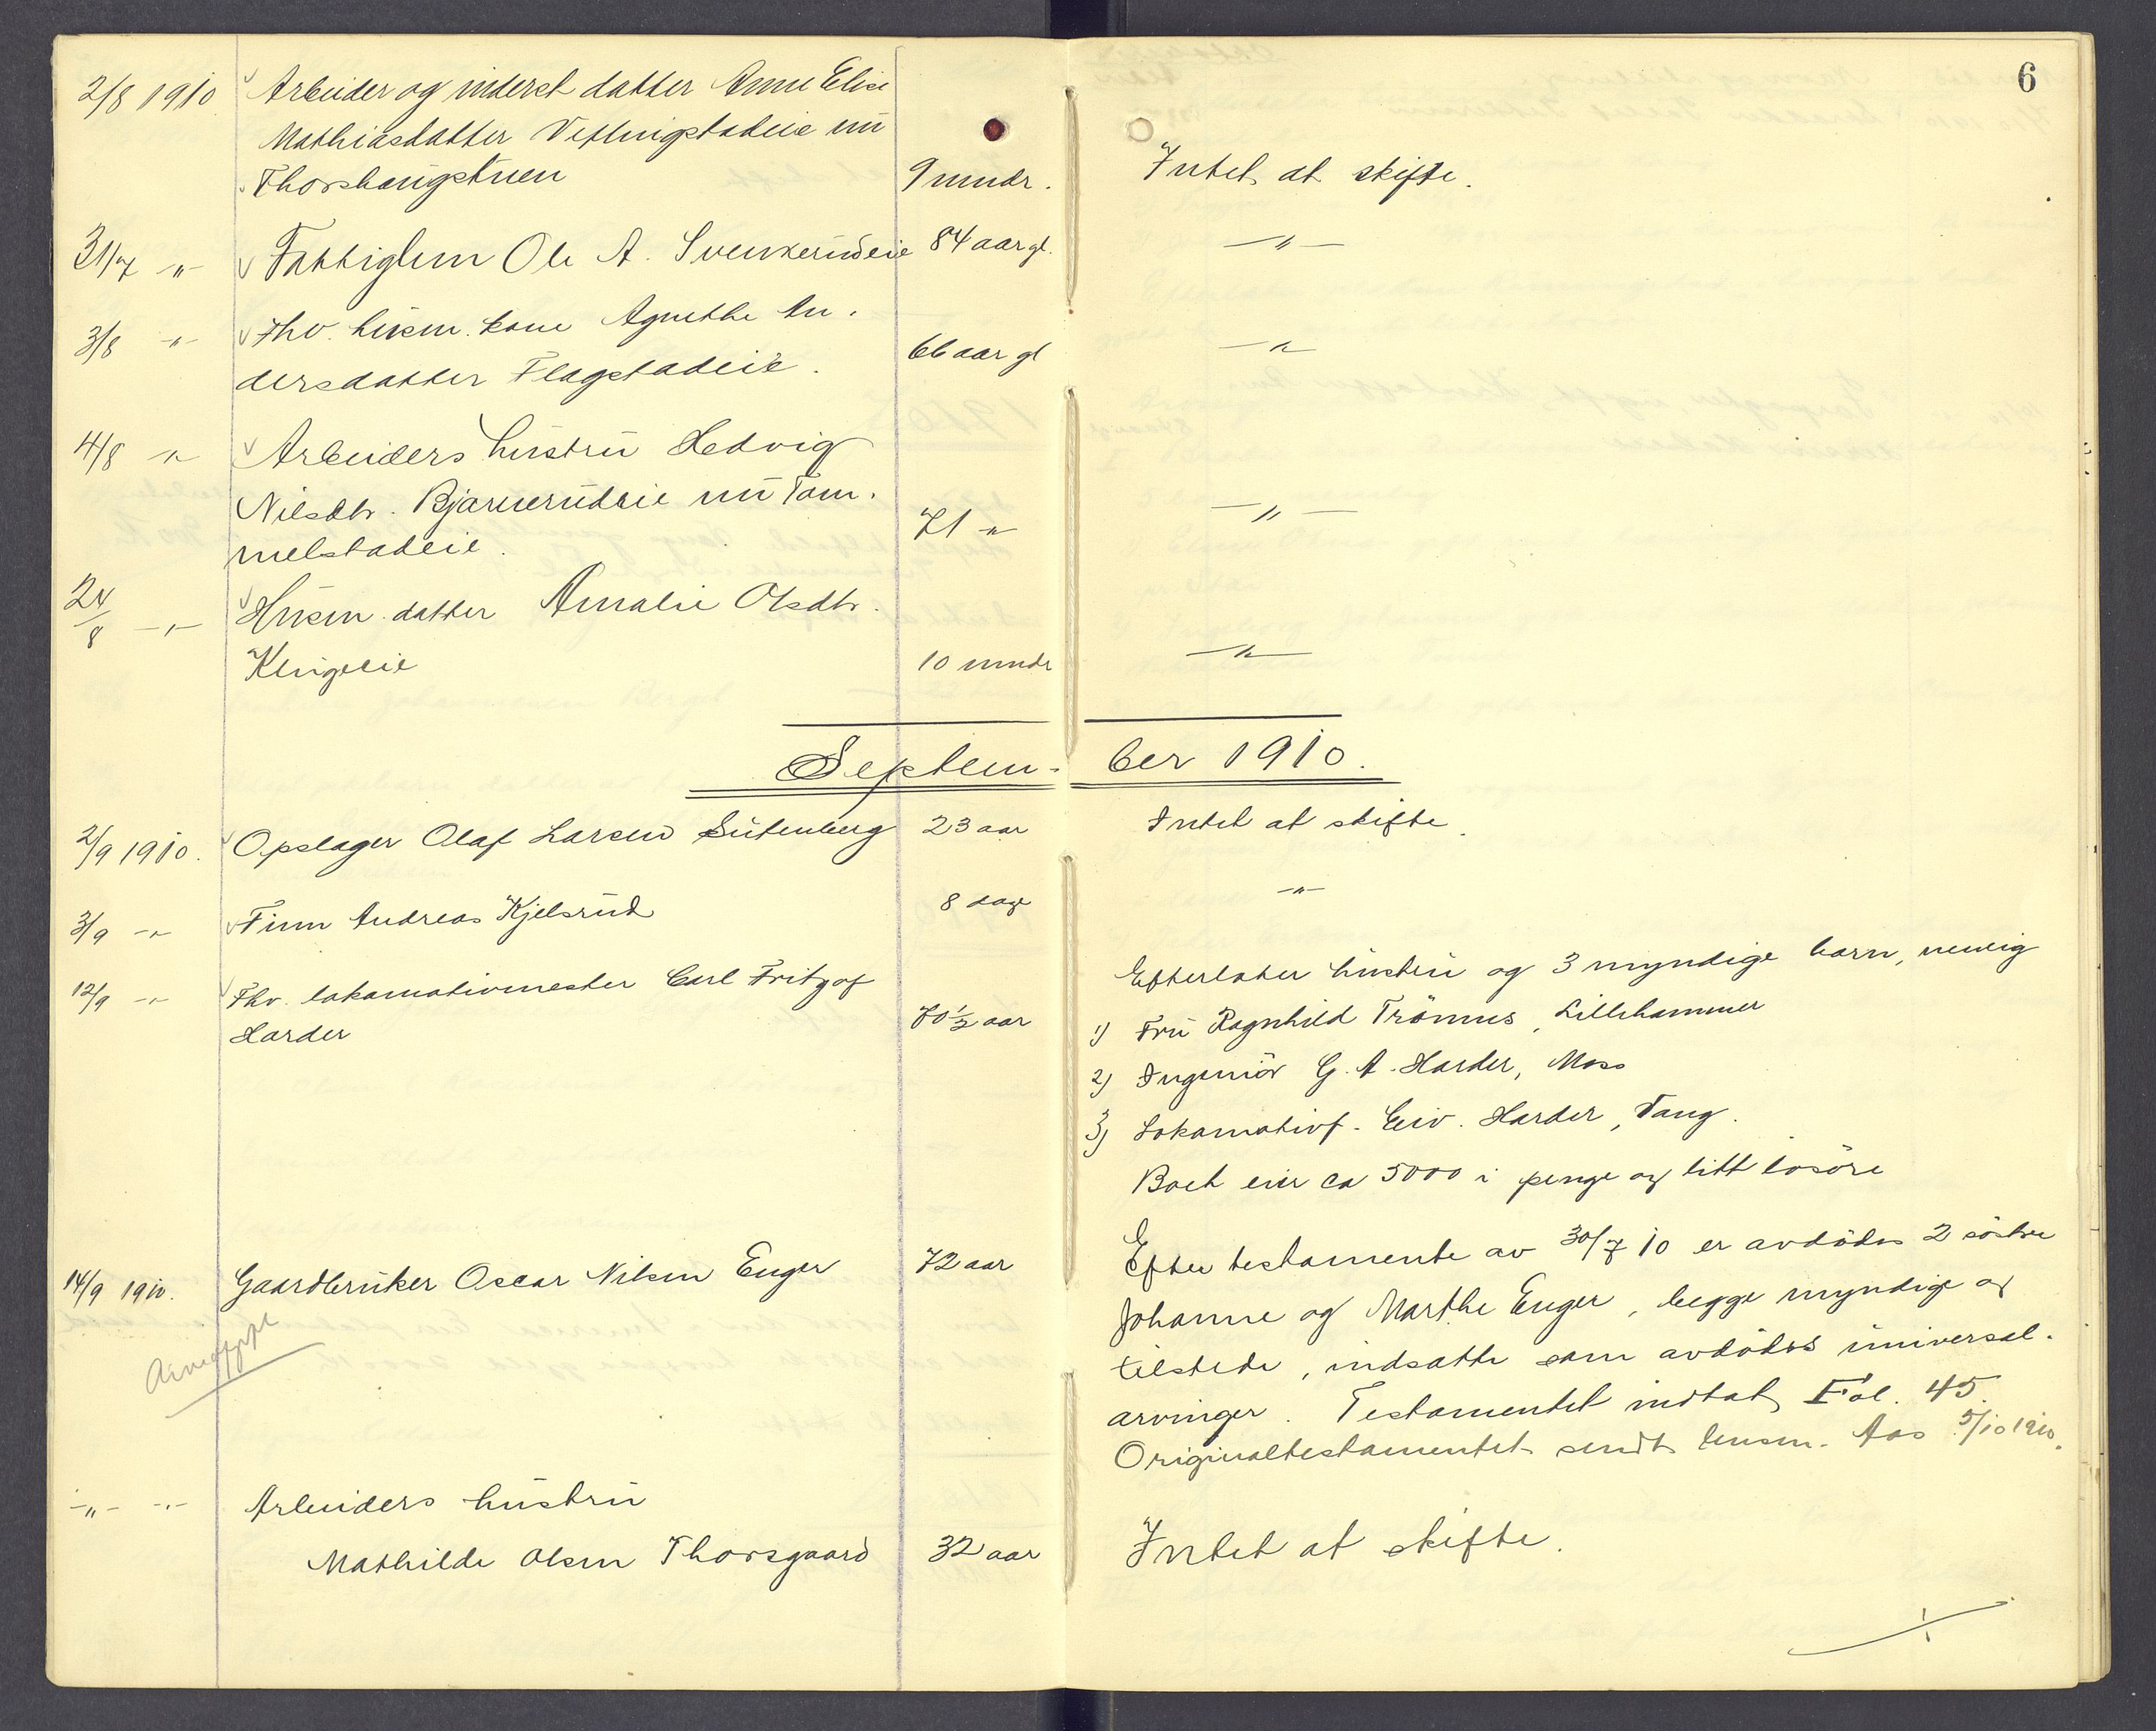 6
2/8 1910 Arbeider og inderst datter Anne Elise
Mathiasdatter Veflingstadeie nu
Thorshaugstuen 9 mndr. Intet at skifte.
31/7 -"- Fattiglem Ole A. Svenkerudeie 84 aar gl. -"-
3/8 -"- Fhv. husm. kone Agnethe An-
dersdatter Flagstadeie. 66 aar gl -"-
4/8 -"- Arbeiders hustru Hedvig
Nilsdtr. Bjørnerudeie nu Tom-
melstadeie. 71 -"- -"-
24/8 -"- Husm. datter Amalie Olsdtr.
Klingeeie 10 mndr -"-
Septem- ber 1910.
2/9 1910. Opslager Olaf Larsen Sutenberg 23 aar Intet at skifte.
3/9 -"- Finn Andreas Kjelsrud 8 dage -"-
12/9 -"- Fhv. lokomotivmester Carl Fritzof
Harder 70 1/2 aar
Efterlater hustru og 3 myndige barn, nemlig
1) Fru Ragnhild Trømnes, Lillehammer
2) Ingeniør G. A. Harder, Moss
3) Lokomotivf. Eiv. Harder, Vang.
Boet eier ca 5000 i penge og litt løsøre
14/9 1910. Gaardbruker Oscar Nilsen Enger 72 aar
Efter testamente av 30/7 10 er avdødes 2 søstre
Johanne og Marthe Enger, begge myndige og
tilstede, indsatte som avdødes universal-
arvinger. Testamentet indtat Fol. 45.
Originaltestamentet sendt lensm. Aas 5/10 1910.
-"- -"- Arbeiders hustru
Mathilde Olsen Thorsgaard 32 aar Intet at skifte.